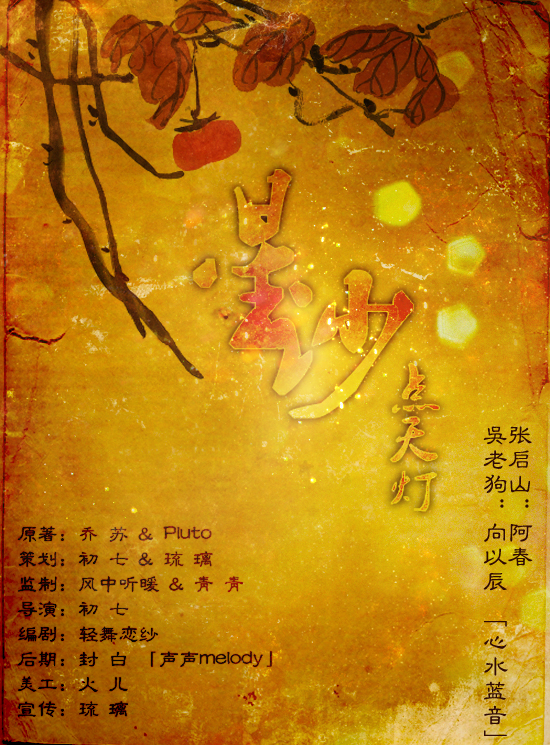 星纱
点天灯
张启山：阿春
吳老狗：向以辰「心水蓝音」
原著：乔 苏 & Pluto
策划：初 七 & 琉 璃
监制：风中听暖 & 青 青
导演：初 七
编剧：轻舞恋纱
后期：封 白「声声melody」
美工：火 儿
宣传：琉 璃